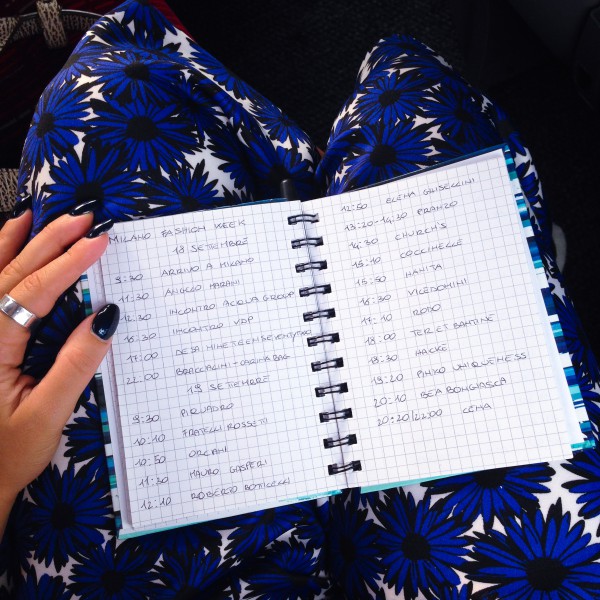 MILANO FASHION WEEK
18 SETTEMBRE
9:30 ARRIVO A MILANO
11:30 ANGELO MARANI
12:30 INCONTRO ACQUA GROUP
16:30 INCONTRO VDP
17:00
22:00 BRACCIALINI + CARINA BAG
19 SETTEMBRE
9:30 PIQUADRO
10:10 FRATELLI ROSSETTI
10:50 ORCIANI
11:30 MAURO GASPERI
12:10 ROBERTO BOTICCELI
12:50 ELENA GHISELLINI
13:20-14:30 PRANZO
14:30 CHURCH'S
15:10 COCCINELLE
15:50 MANITA
16:30 VICEDOMINI
17:10 RODO
18:00 TER ET BANTINE
18:30 HACKE
19:20 PINKO UNIQUENESS
20:10 BEA BONGIASCA
20:20/22:00 CENA